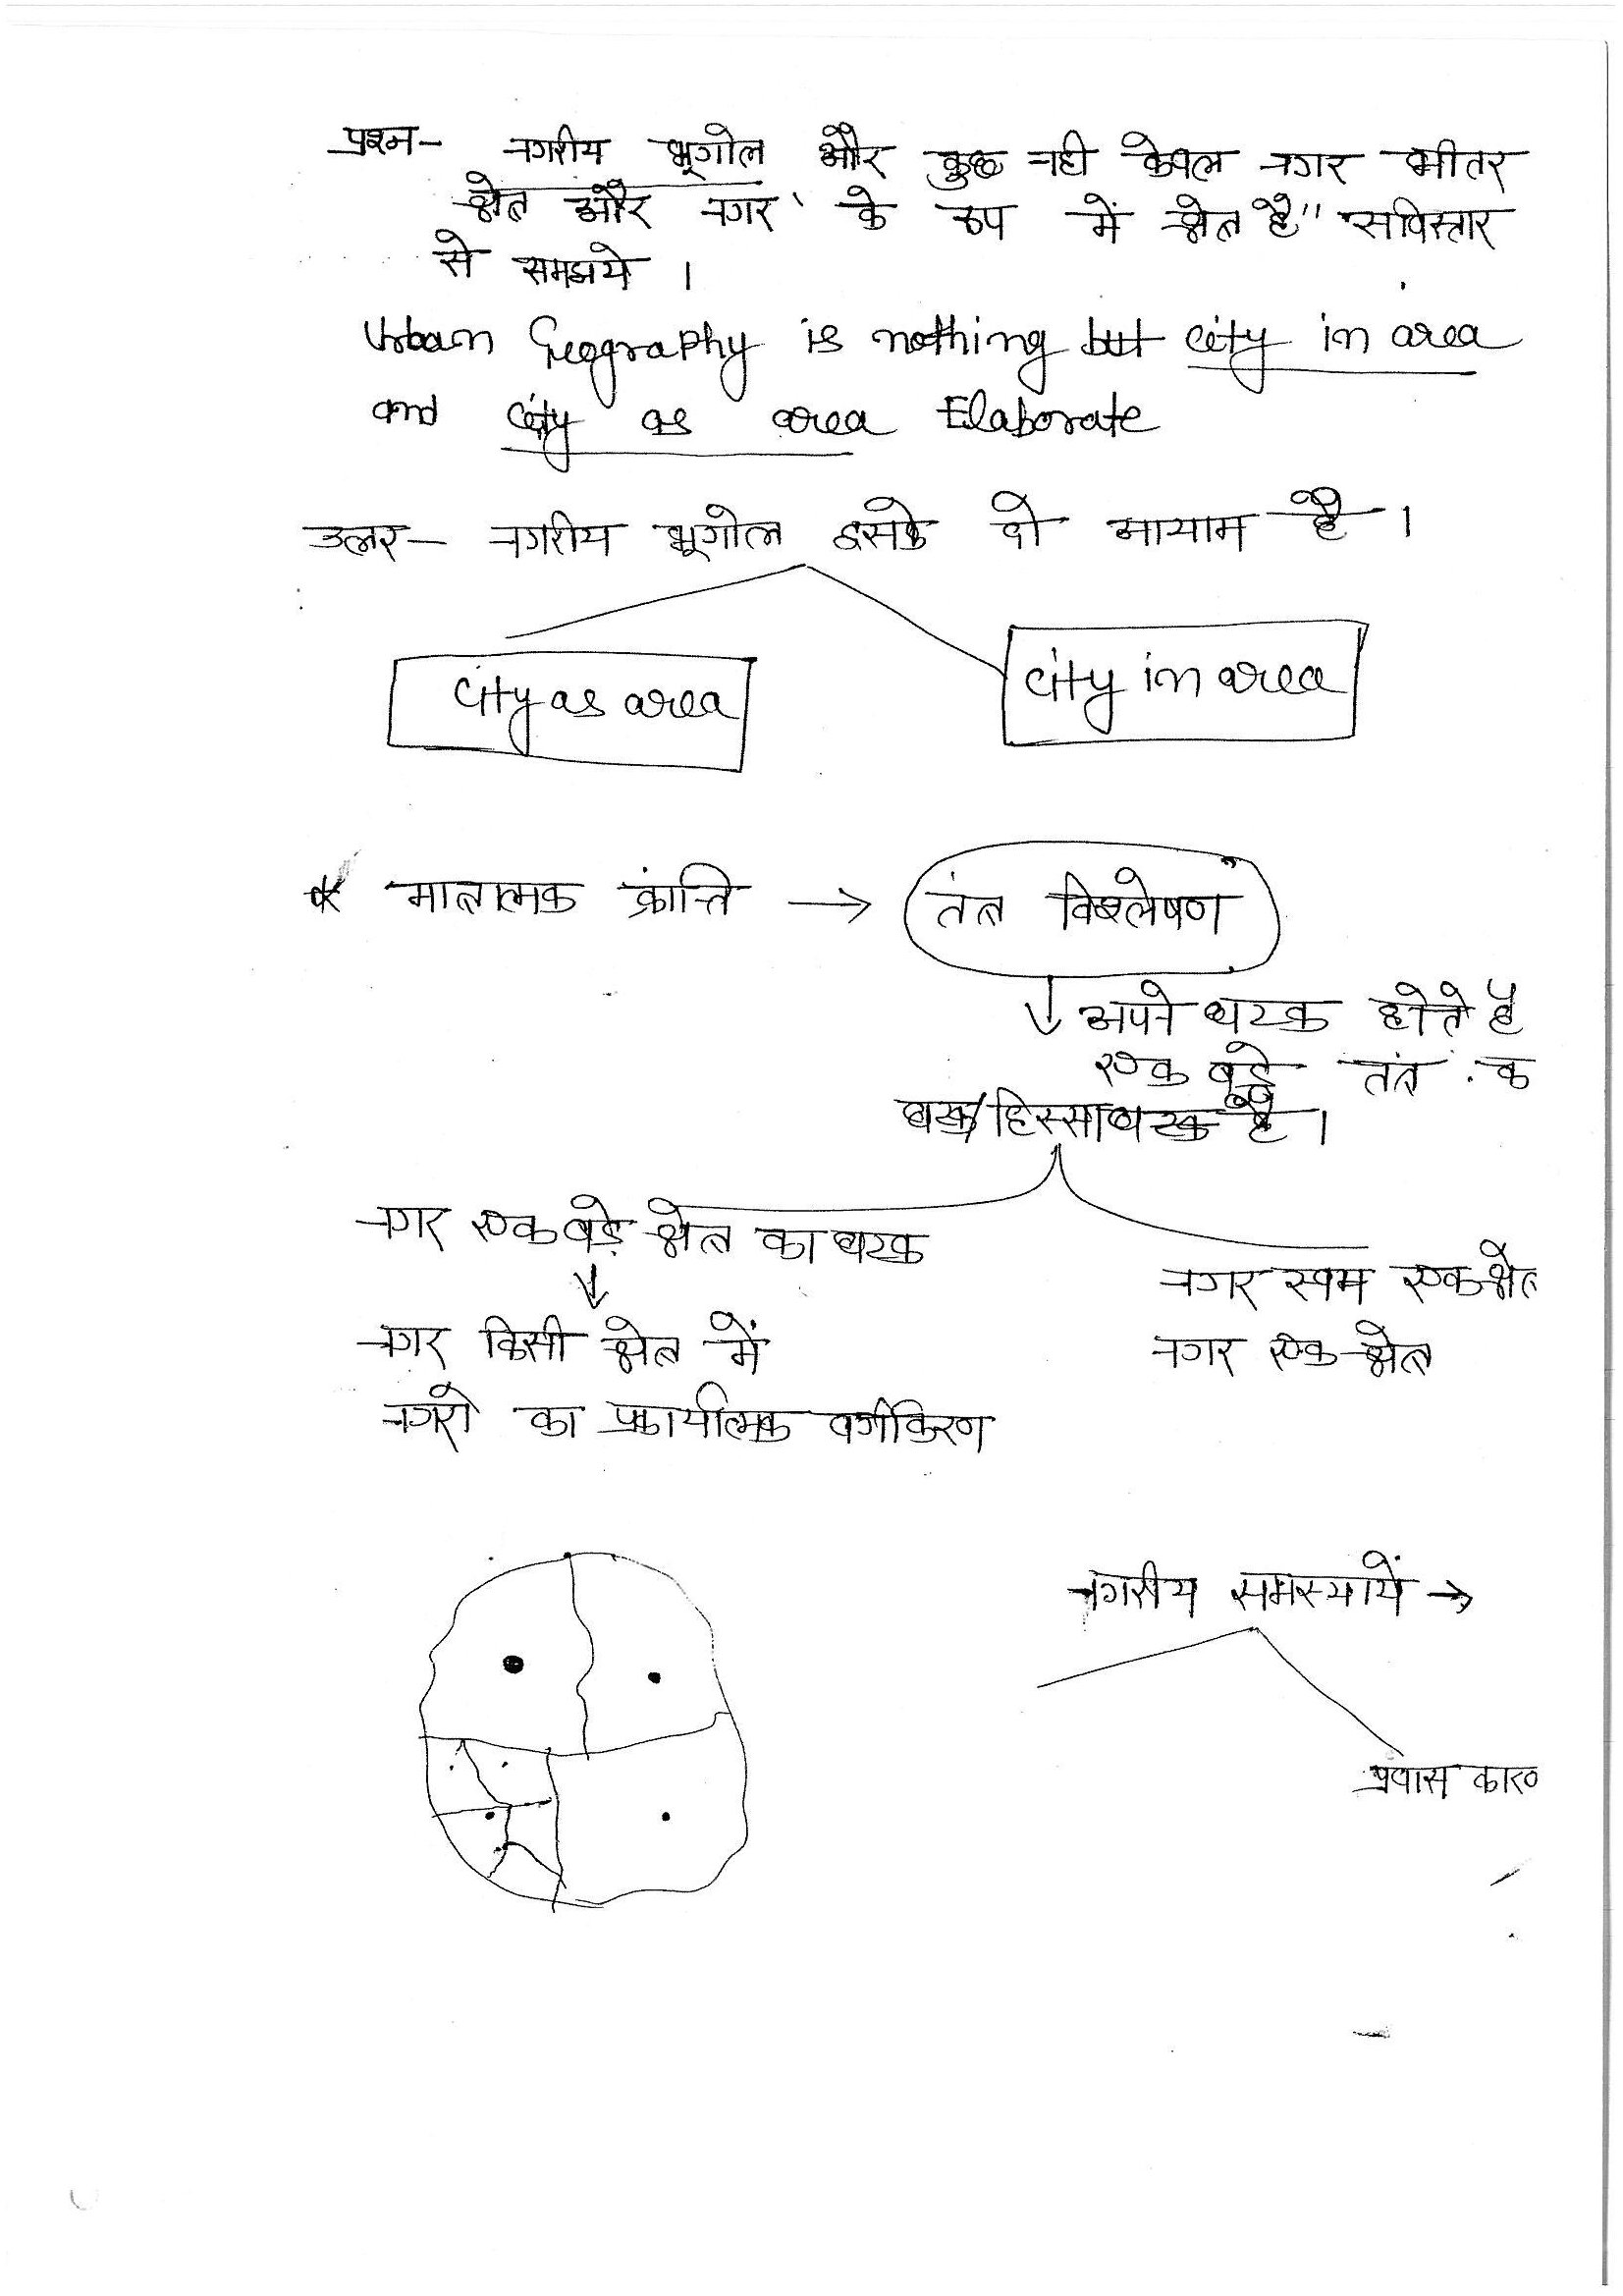 प्रश्न- नगरीय भूगोल और कुछ नही केवल नगर भीतर
क्षेत्र और नगर' के रूप में क्षेत्र है" सविस्तार
से समझये ।
Urban Geography is nothing but city in area
and city as area Elaborate
उत्तर- नगरीय भूगोल इसके दो आयाम है ।
city as area
city in area
* मात्रात्मक क्रांत्ति →
तंत्र विश्लेषण
↓ अपने घटक होते है
एक बड़े तंत्र क
घटक/हिस्सा घटक है ।
नगर एक बड़े क्षेत्र का घटक
↓
नगर स्वम एक क्षेत्र
नगर किसी क्षेत्र में
नगर एक क्षेत्र
नगरो का प्रकार्यात्मक वर्गीकरण
नगरीय समस्यायें →
प्रवास कारण